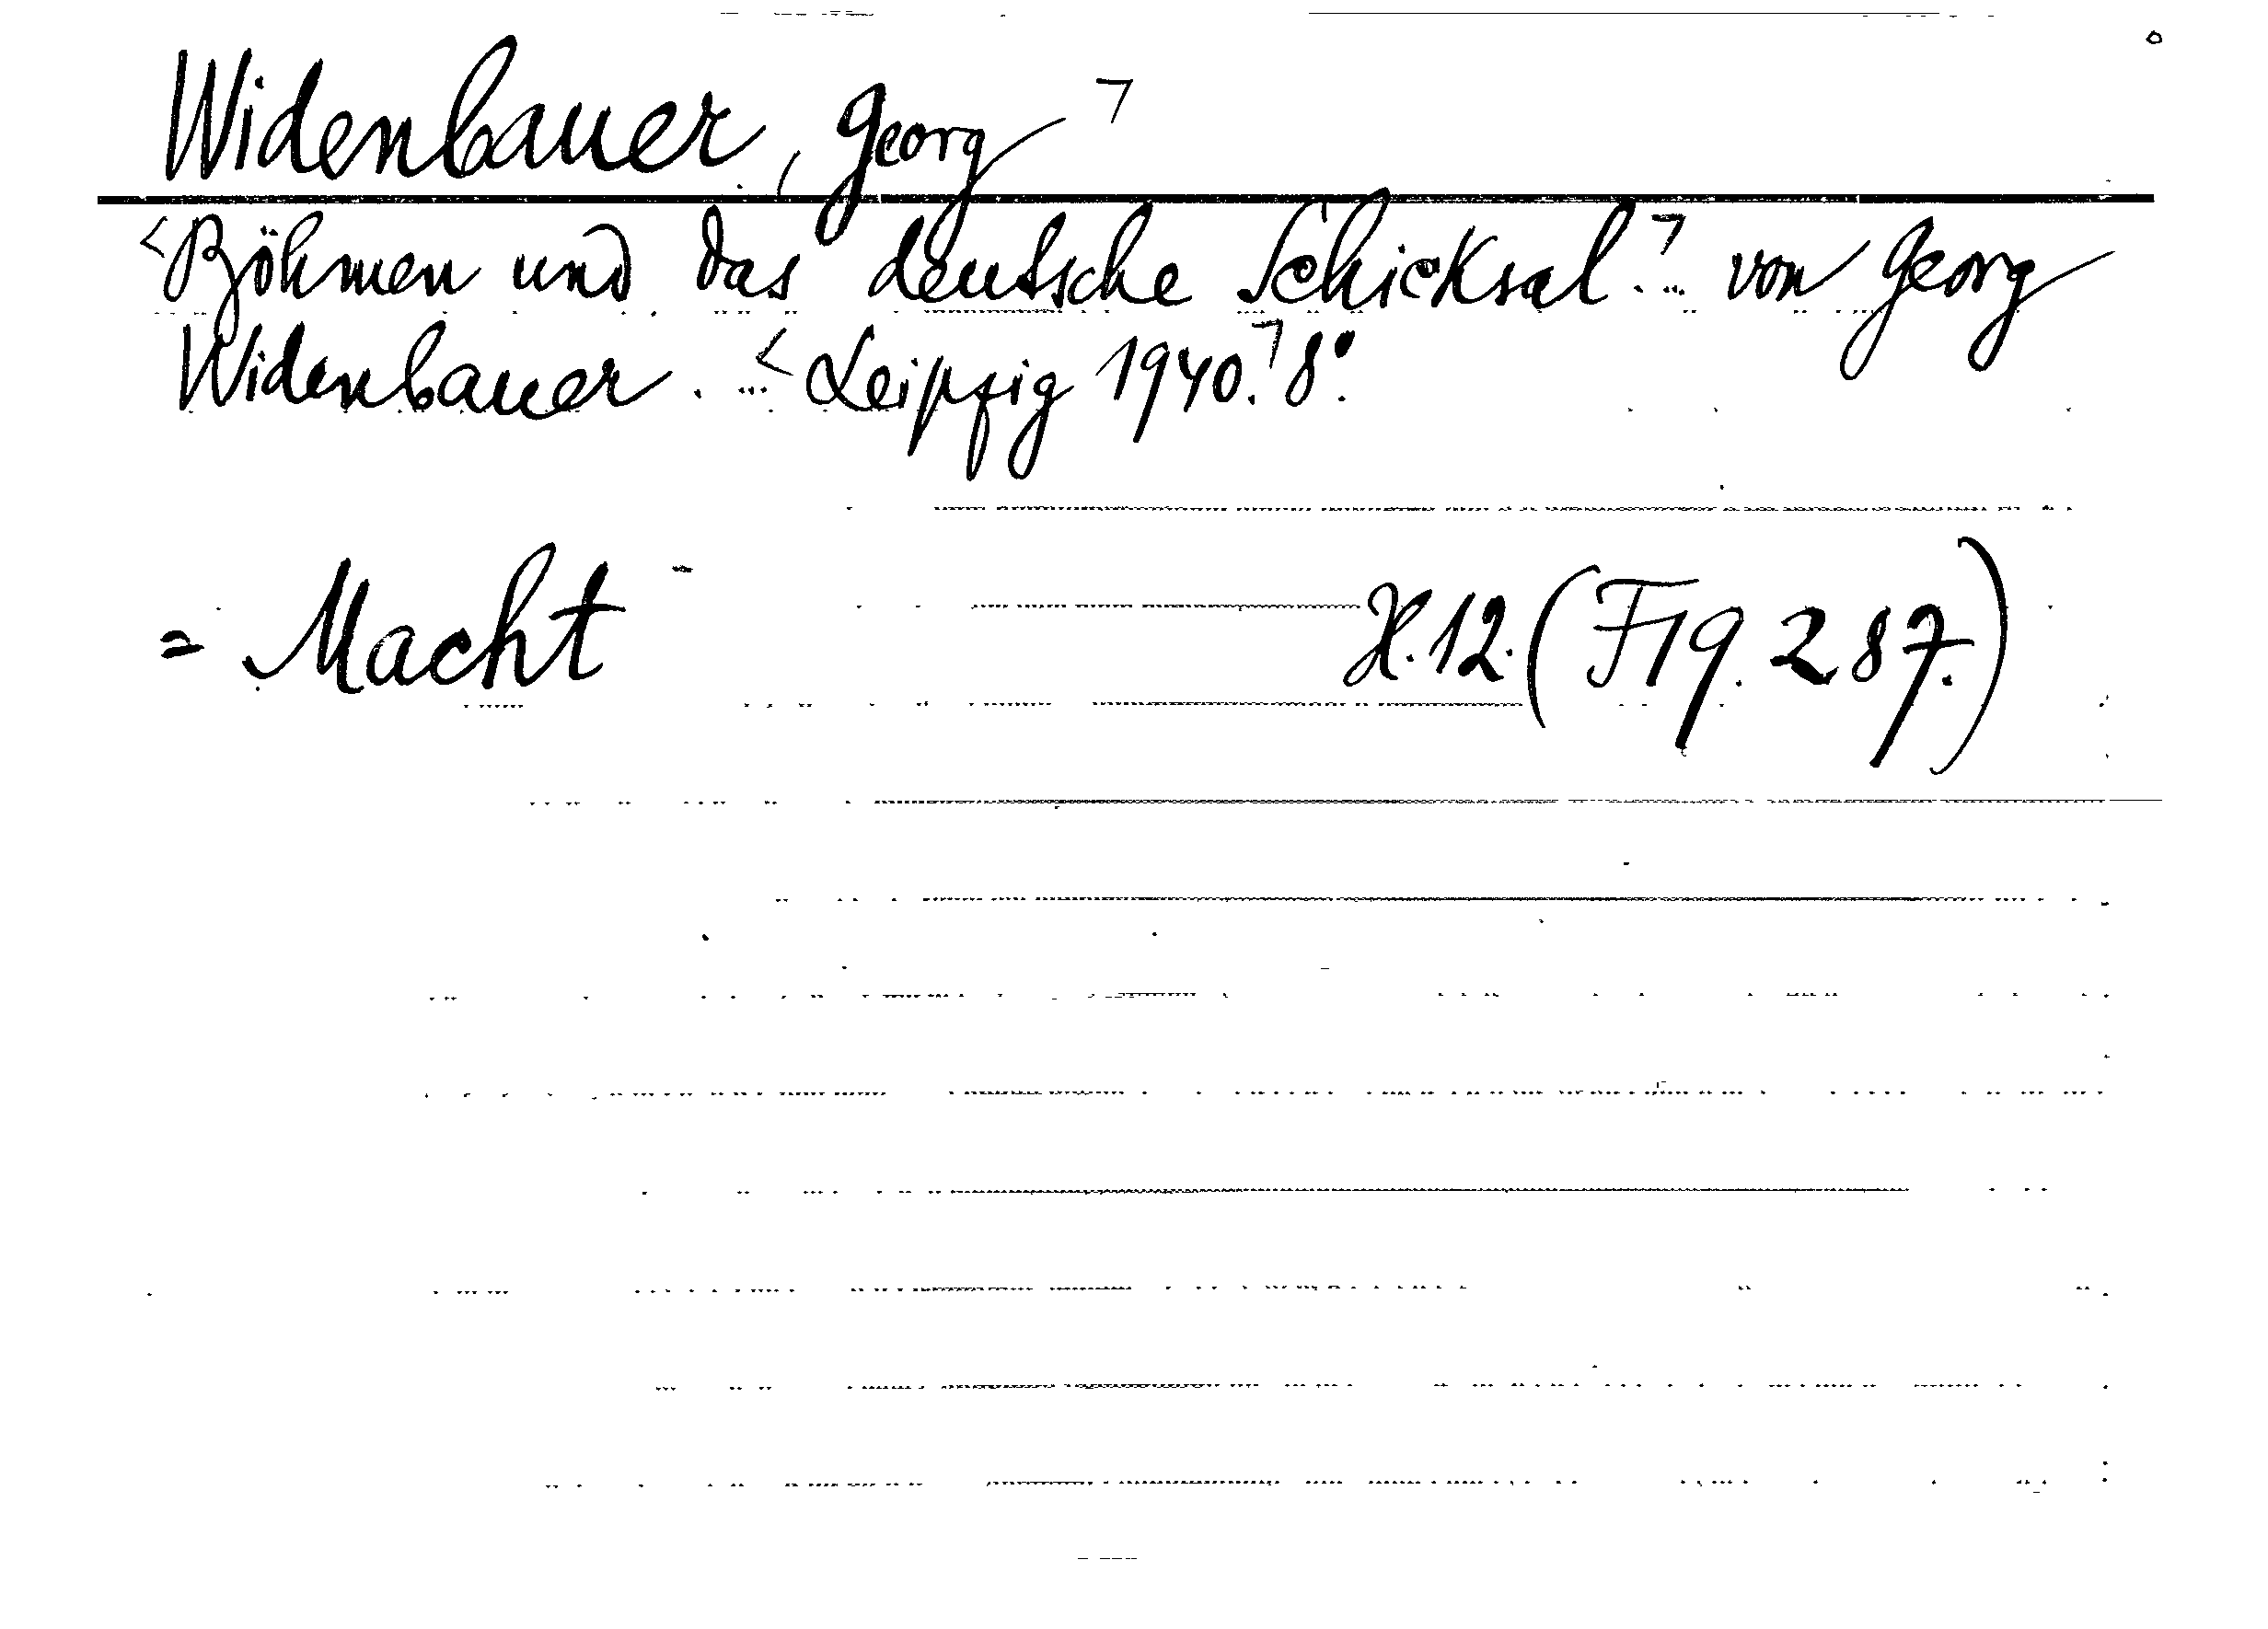 Widenbauer, Georg ㄱ
<Böhmen und das deutsche Schicksal.ㄱ... von Georg
Widenbauer. ...<Leipzig 1940.ㄱ 8°.
= Macht - H.12.(F19.287.)